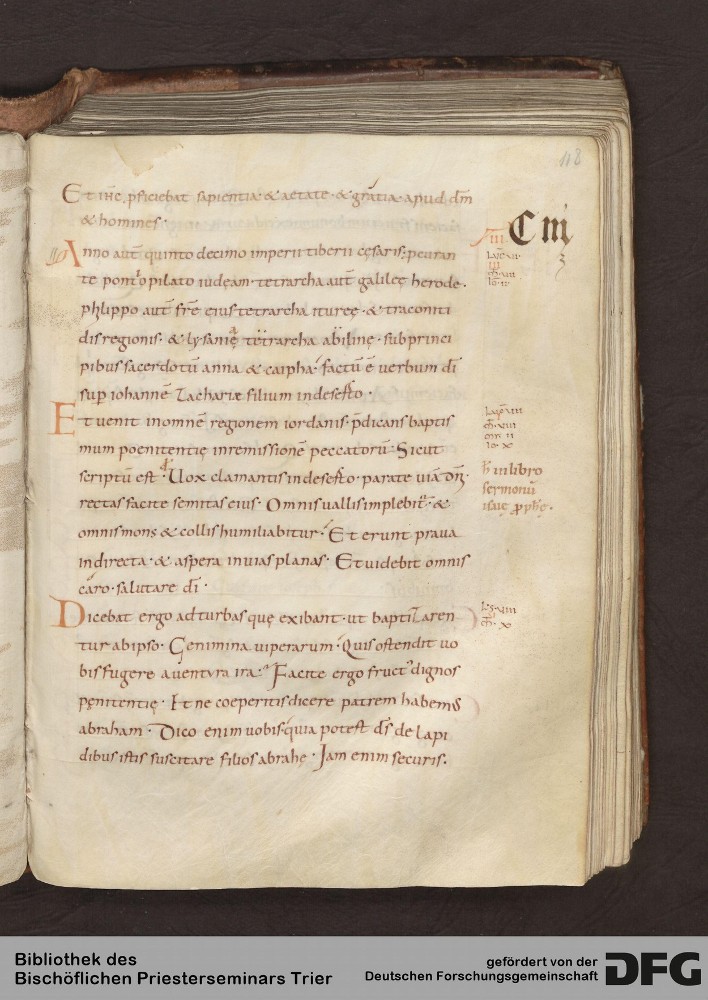 118
Et ihc pficiebat sapientia & aetate & gratia apud dm
& homines.
Anno aut quinto decimo imperii tiberii cęsaris; pcuran
te pontio pilato iudeam. tetrarcha aut galileę herode.
philippo aut fre eius tetrarcha itureę. & traconiti
dis regionis. & lysanię tetrarcha abilinę. sub princi
pibus sacerdotu anna & caipha. factu e uerbum di
sup iohanne Zachariæ filium in deserto.
Et uenit in omne regionem iordanis. pdicans baptis
mum poenitentię in remissione peccatoru. Sicut
scriptu est. Uox clamantis in deserto. parate uia dni.
rectas facite semitas eius. Omnis uallis implebit. &
omnis mons & collis humiliabitur. Et erunt praua
in directa. & aspera in uias planas. Et uidebit omnis
caro. salutare di.
Dicebat ergo ad turbas quę exibant. ut baptizaren
tur ab ipso. Genimina uiperarum. Quis ostendit uo
bis fugere a uentura ira. Facite ergo fruct dignos
pęnitentię. Et ne coeperitis dicere patrem habemus
abraham. Dico enim uobis quia potest ds de lapi
dibus istis suscitare filios abrahę. Iam enim securis.
C iii
h in libro
sermonu
isaię pphę.
Bibliothek des
Bischöflichen Priesterseminars Trier
gefördert von der
Deutschen Forschungsgemeinschaft
DFG